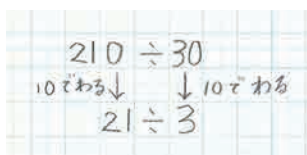 210÷30
10でわる↓ ↓10でわる
21÷3